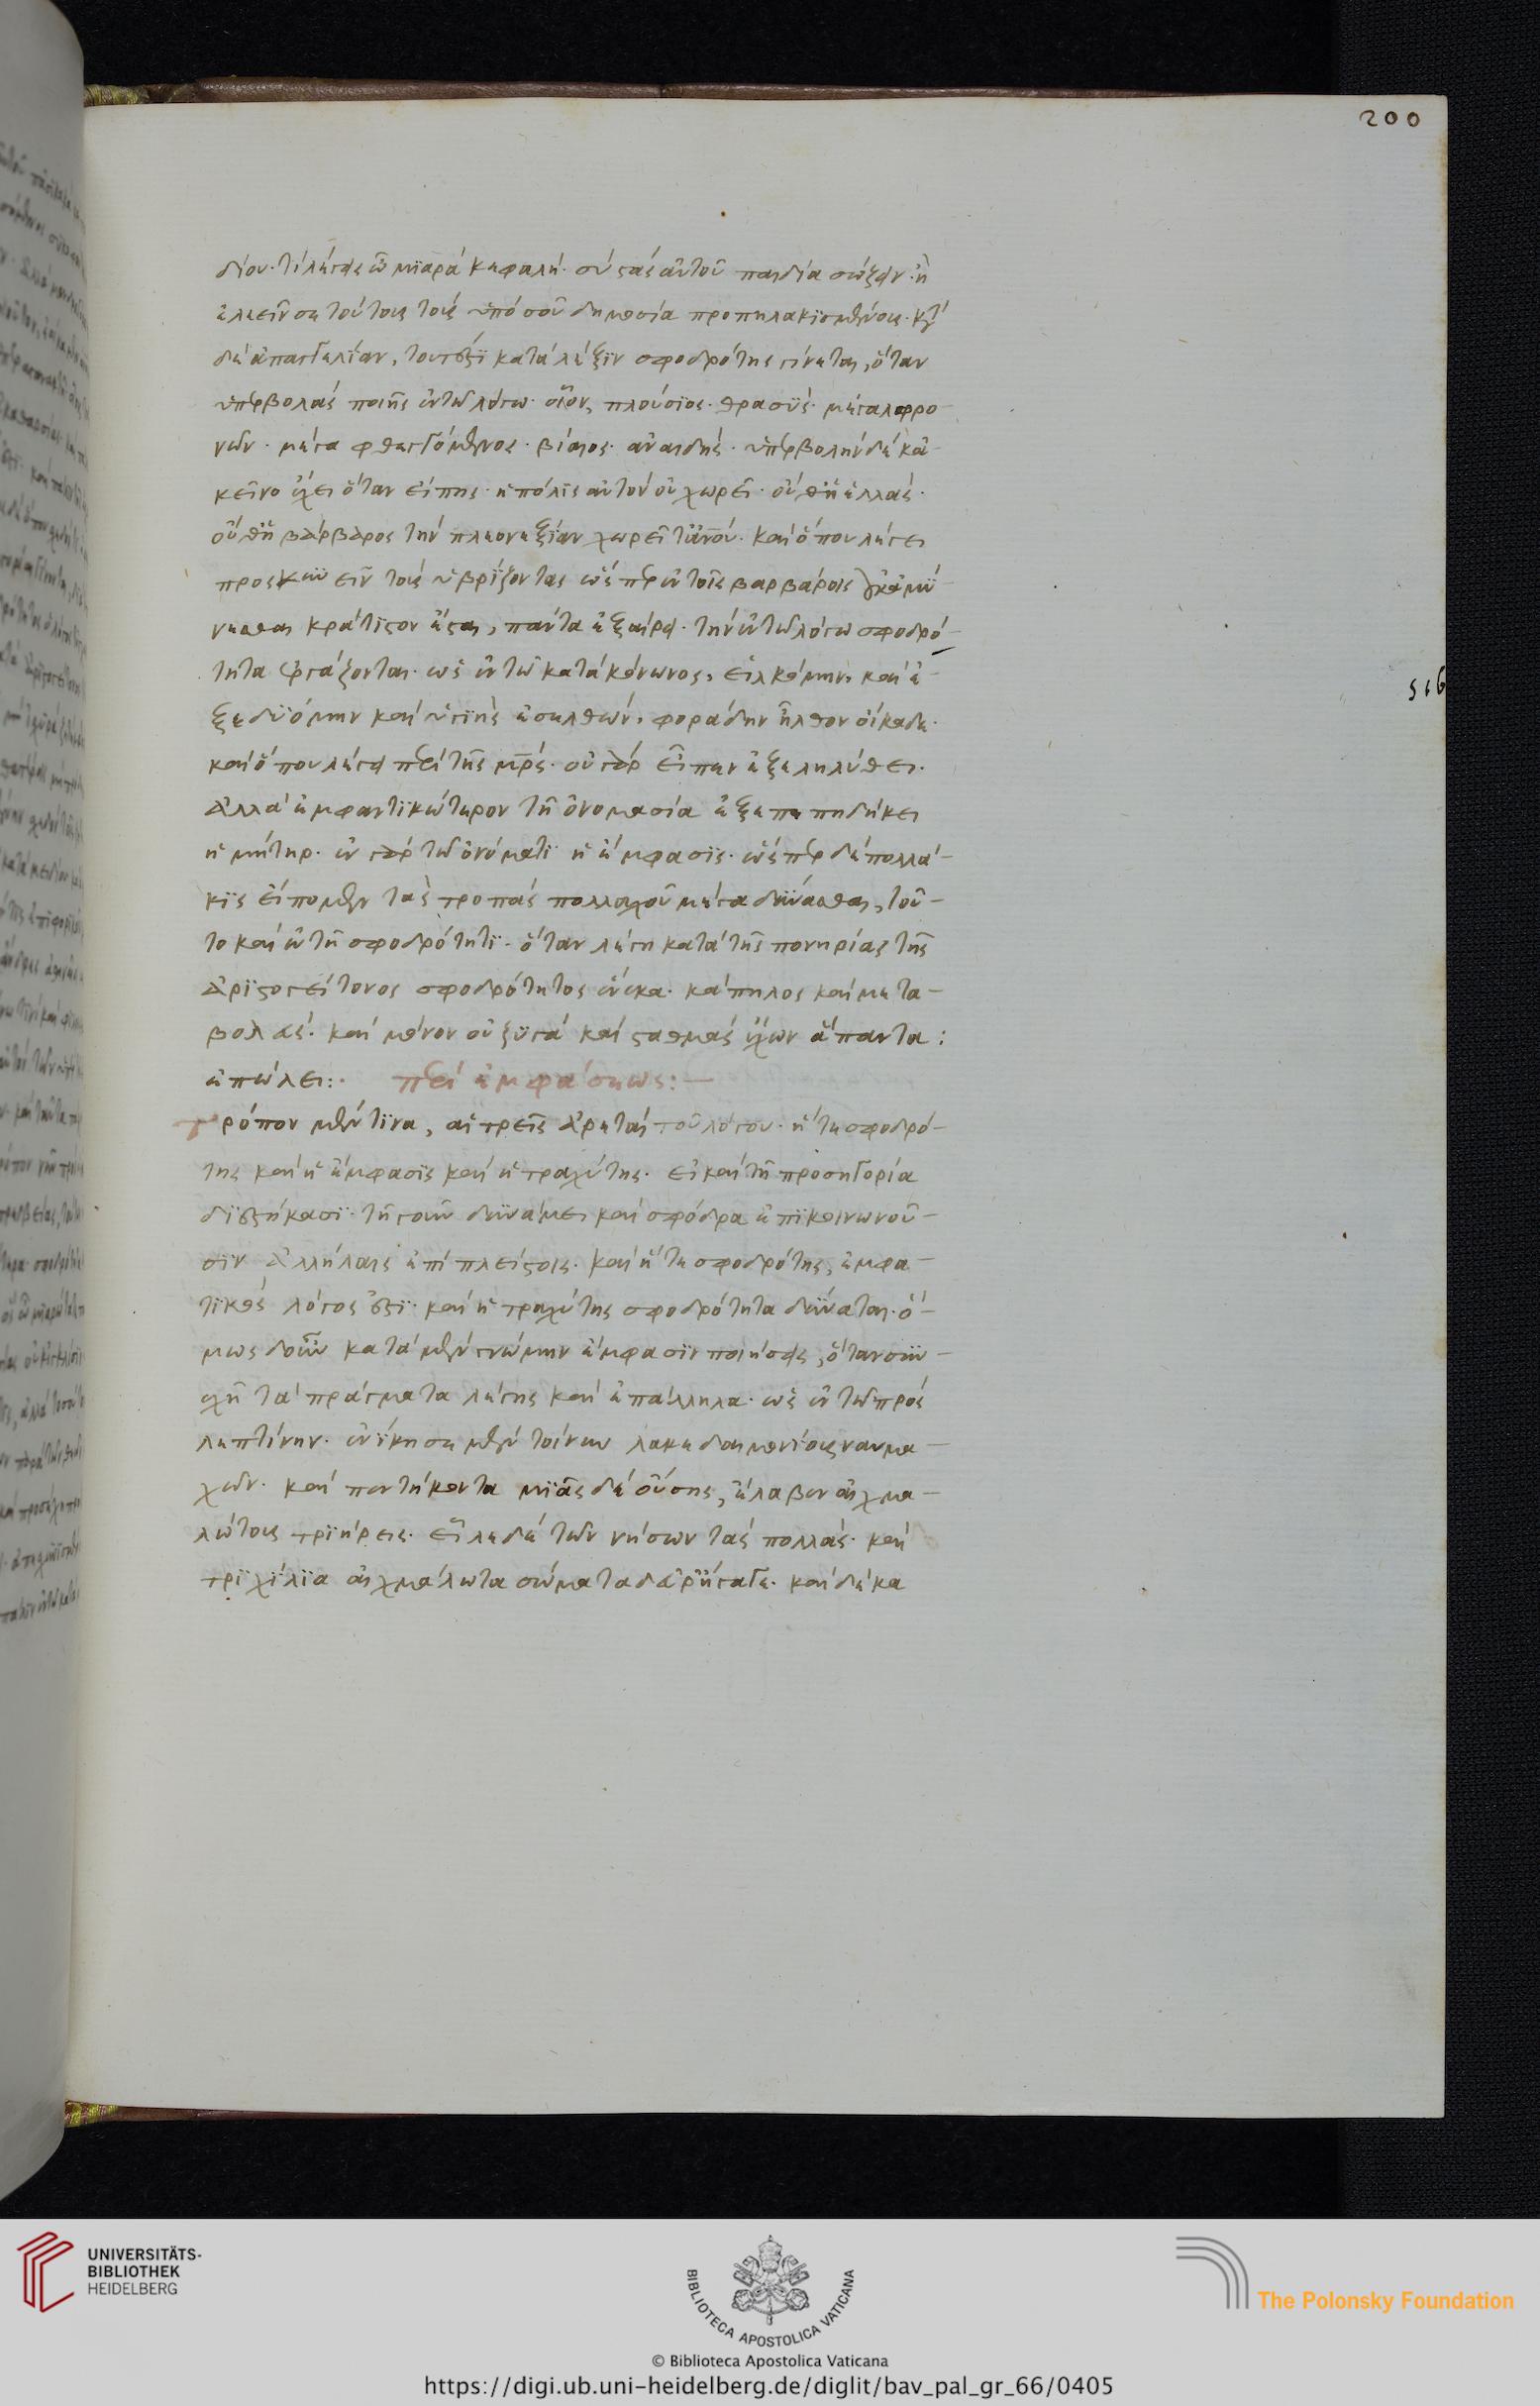 200
δίου· τί λέγεις ὦ μϊαρὰ κεφαλή· σὺ τὰς αὐτοῦ παιδία σώζειν· ἢ
ἐλεεῖν σε τούτοις τοῖς ὑπὸ σοῦ δημοσία προπηλακϊσμένοις· κατὰ
δὲ ἀπαγγελίαν, τουτέστϊ κατὰ λέξϊν σφοδρότης γίνεται, ὅταν
ὑπερβολὰς ποιῆς ἐν τῶ λόγω· οἷον, πλούσϊος· θρασὺς· μεγαλοφρο-
νῶν· μέγα φθεγγόμενος· βίαιος· ἀναιδής· ὑπερβολὴν δὲ κἀ-
κεῖνο ἔχει ὅταν εἴπης· ἡ πόλϊς αὐτὸν οὐ χωρεῖ· οὐθ' ἡ ἑλλὰς·
οὔθ' ἡ βάρβαρος τὴν πλεονεξίαν χωρεῖ τἀνοῦ· καὶ ὅπου λέγει
προσκϋνεῖν τοὺς ὑβρΐζοντας ὥσπερ ἐν τοῖς βαρβάροις οὐκ ἀμΰ-
νεσθαι κράτϊστον ἔσται, πάντα ἐξαίρει· τὴν ἐν τῶ λόγω σφοδρό-
τητα ἐργάζονται· ὡς ἐν τῶ κατὰ κόνωνος, εἱλκόμην, καὶ ἐ-
ξεδϋόμην καὶ ὑγϊὴς ἐξελθὼν, φοράδην ἦλθον οἴκαδε·
516
καὶ ὅπου λέγει περὶ τῆς μητρὸς· οὐ γὰρ εἶπεν ἐξεληλύθει·
ἀλλὰ ἐμφαντϊκώτερον τῆ ὀνομασία ἐξεπεπηδήκει
ἡ μήτηρ· ἐν γὰρ τῶ ὀνόματϊ ἡ ἔμφασϊς· ὥσπερ δὲ πολλά-
κϊς εἴπομεν τὰς τροπὰς πολλαχοῦ μέγα δύνασθαι, τοῦ-
το καὶ ἐν τῆ σφοδρότητϊ· ὅταν λέγη κατὰ τῆς πονηρίας τῆς
ἀρϊστογείτονος σφοδρότητος ἕνεκα· κάπηλος καὶ μετα-
βολεύς· καὶ μόνον οὐ ζϋγὰ καὶ σταθμὰς ἔχων ἅπαντα:
ἐπώλει:· περὶ ἐμφάσεως:—
τρόπον μέν τϊνα, αἱ τρεῖς ἀρεταὶ τοῦ λόγου· ἥ τε σφοδρό-
της καὶ ἡ ἔμφασϊς καὶ ἡ τραχύτης· εἰ καὶ τῆ προσηγορία
δϊεστήκασϊ· τῆ γοῦν δϋνάμει καὶ σφόδρα ἐπϊκοινωνοῦ-
σϊν ἀλλήλαις ἐπὶ πλεῖστοις· καὶ ἥ τε σφοδρότης, ἐμφα-
τϊκὸς λόγος ἐστϊ· καὶ ἡ τραχύτης σφοδρότητα δύναται· ὅ-
μως δ' οὖν κατὰ μὲν γνώμην ἔμφασϊν ποιήσεις, ὅταν σϋν-
εχῆ τὰ πράγματα λέγης καὶ ἐπάλληλα· ὡς ἐν τῶ πρὸς
λεπτίνην· ἐνΐκησε μὲν τοίνυν λακεδαιμονίους ναυμα-
χῶν· καὶ πεντήκοντα μϊᾶς δὲ οὔσης, ἔλαβεν αἰχμα-
λώτους τρϊήρεις· εἷλε δὲ τῶν νήσων τὰς πολλὰς· καὶ
τρϊχίλϊα αἰχμάλωτα σώματα δεῦρ' ἤγαγε· καὶ δέκα
UNIVERSITÄTS-
BIBLIOTHEK
HEIDELBERG
BIBLIOTECA APOSTOLICA VATICANA
The Polonsky Foundation
© Biblioteca Apostolica Vaticana
https://digi.ub.uni-heidelberg.de/diglit/bav_pal_gr_66/0405